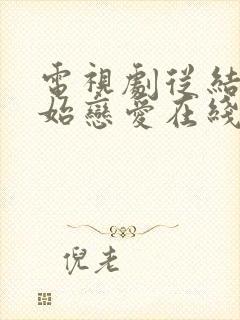 電視劇從結
始戀愛在綫
倪老